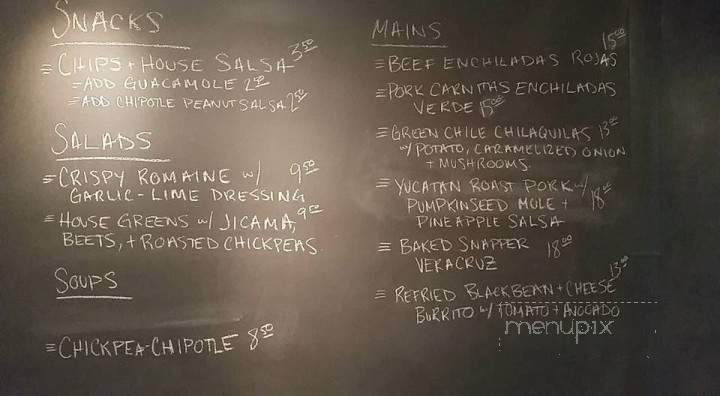 SNACKS
CHIPS + HOUSE SALSA 3.50
ADD GUACAMOLE 2.50
ADD CHIPOTLE PEANUT SALSA 2.50
SALADS
CRISPY ROMAINE W/ 9.50
GARLIC-LIME DRESSING
HOUSE GREENS W/ JICAMA, 9.00
BEETS, + ROASTED CHICKPEAS
SOUPS
CHICKPEA-CHIPOTLE 8.50
MAINS
BEEF ENCHILADAS ROJAS 15.00
PORK CARNITAS ENCHILADAS
VERDE 15.00
GREEN CHILE CHILAQUILAS 13.00
W/ POTATO, CARAMELIZED ONION
+ MUSHROOMS
YUCATAN ROAST PORK W/
PUMPKINSEED MOLE + 18.00
PINEAPPLE SALSA
BAKED SNAPPER 18.00
VERACRUZ
REFRIED BLACKBEAN + CHEESE 13.00
BURRITO W/ TOMATO + AVOCADO
menupix